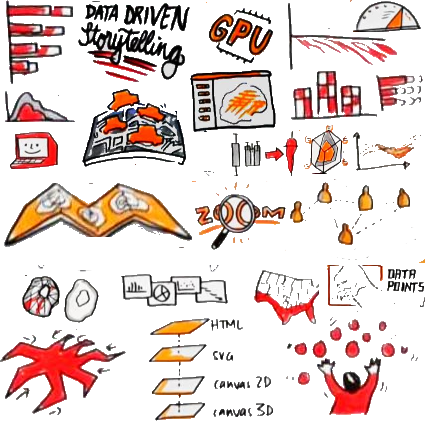 DATA DRIVEN
Storytelling
GPU
ZOOM
DATA
POINTS
HTML
SVG
canvas 2D
canvas 3D